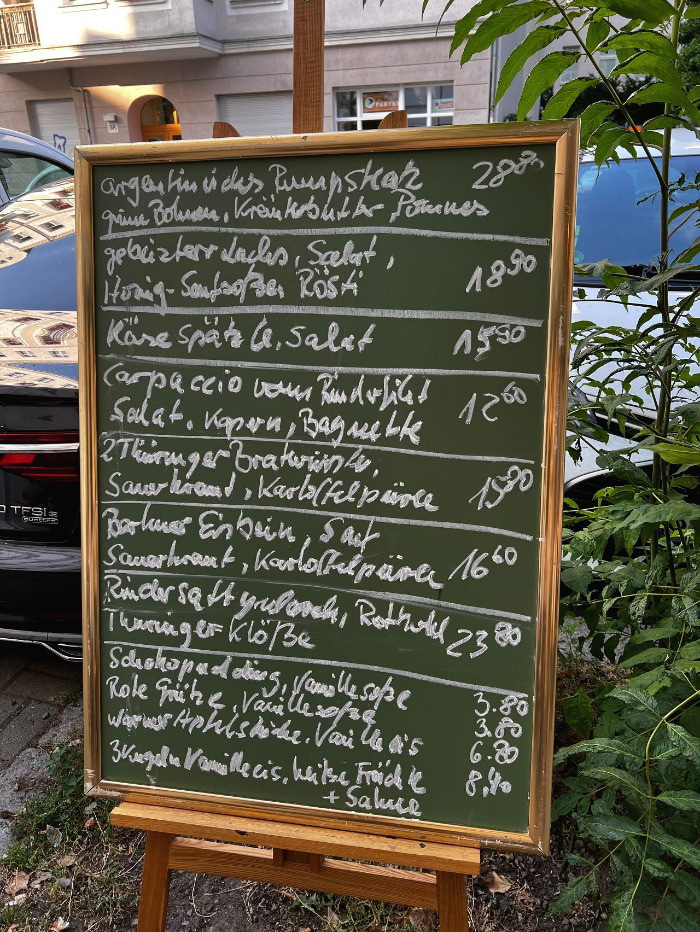 argentinisches Rumpsteak 28 80
grüne Bohnen, Kräuterbutter Pommes
gebeizter Lachs, Salat,
Honig-Senfsoße Rösti 18 90
Käsespätzle, Salat 15 90
Carpaccio vom Rinderfilet
Salat, Kapern, Baguette 12 60
2 Thüringer Bratwürste,
Sauerkraut, Kartoffelpüree 15 80
Berliner Eisbein, Senf
Sauerkraut, Kartoffelpüree 16 60
Rindersaftgulasch, Rotkohl 23 80
Thüringer Klöße
Schokopudding, Vanillesoße 3.80
Rote Grütze, Vanillesoße 3.80
warmer Apfelstrudel, Vanilleeis 6.80
3 Kugeln Vanilleeis, heiße Früchte 8,40
+ Sahne
TFSI e